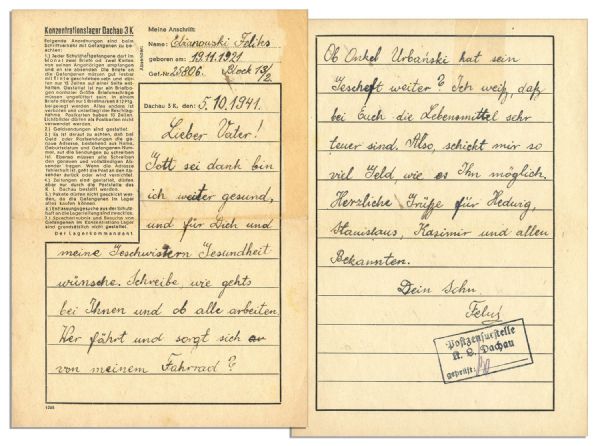 Konzentrationslager Dachau 3K
Folgende Anordnungen sind beim
Schriftverkehr mit Gefangenen zu be-
achten:
1.) Jeder Schutzhaftgefangene darf im
Monat zwei Briefe od. zwei Karten
von seinen Angehörigen empfangen
und an sie absenden. Die Briefe an
die Gefangenen müssen gut lesbar
mit Tinte geschrieben sein und dür-
fen nur 15 Zeilen auf einer Seite ent-
halten. Gestattet ist nur ein Briefbo-
gen normaler Größe. Briefumschläge
müssen ungefüttert sein. In einem
Briefe dürfen nur 5 Briefmarken à 12 Pfg.
beigelegt werden. Alles andere ist
verboten und unterliegt der Beschlag-
nahme. Postkarten haben 10 Zeilen.
Lichtbilder dürfen als Postkarten nicht
verwendet werden.
2.) Geldsendungen sind gestattet.
3.) Es ist darauf zu achten, daß bei
Geld- oder Postsendungen die genaue
Adresse, bestehend aus Name,
Geburtsdatum und Gefangenen-Nummer,
auf die Sendungen zu schreiben
ist.
4.) Zeitungen sind gestattet, dürfen
aber nur durch die Poststelle des
K. L. Dachau bestellt werden.
5.) Pakete dürfen nicht geschickt werden,
da die Gefangenen im Lager
alles kaufen können.
6.) Entlassungsgesuche aus der Schutz-
haft an die Lagerleitung sind zwecklos.
7.) Sprecherlaubnis und Besuche von
Gefangenen im Konzentrations-Lager
sind grundsätzlich nicht gestattet.
Der Lagerkommandant
Meine Anschrift:
Name: Feliks
geboren am: 19.11.1921
Gef.-Nr. 25806. Block 19/2
Dachau 3 K, den: 5.10.1941.
Lieber Vater!
Gott sei dank bin
ich weiter gesund,
und für Dich und
meine Geschwistern Gesundheit
wünsche. Schreibe, wie gehts
bei Ihnen und ob alle arbeiten.
Wer fährt und sorgt sich
von meinem Fahrrad?
Ob Onkel Urbański hat sein
Gescheft weiter? Ich weiß, daß
bei Euch die Lebensmittel sehr
teuer sind. Also, schickt mir so
viel Geld, wie es Ihn möglich,
Herzliche Grüße für Hedwig,
Stanislaus, Kasimir und allen
Bekannten.
Dein Sohn.
Feluś
Postzensurstelle
K. L. Dachau
geprüft: